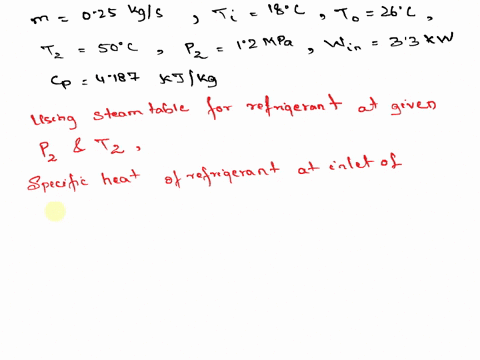 m = 0.25 kg/s , Ti = 18°C , To = 26°C ,
T2 = 50°C , P2 = 1.2 MPa , Win = 3.3 kW
Cp = 4.187 kJ/kg
Using steam table for refrigerant at given
P2 & T2 ,
Specific heat of refrigerant at inlet of